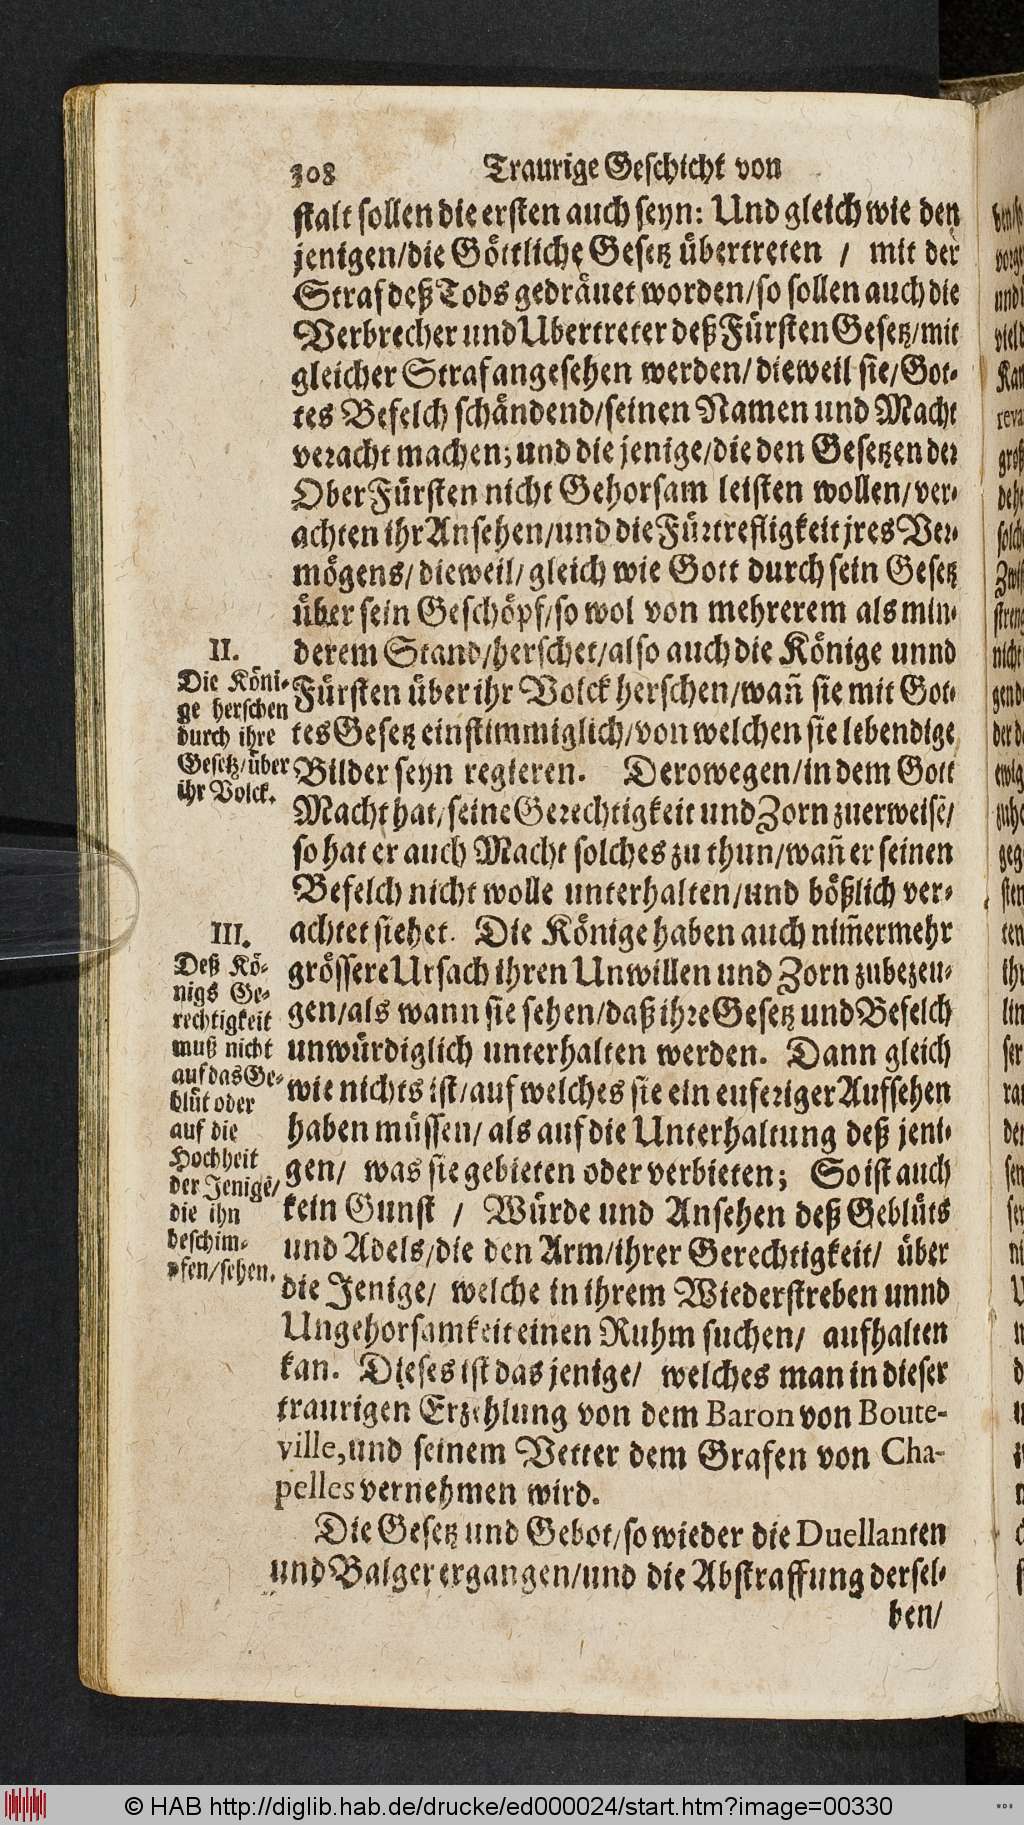 308 Traurige Geschicht von
stalt sollen die ersten auch seyn: Und gleich wie den
jenigen/die Göttliche Gesetz übertreten / mit der
Straf deß Tods gedräuet worden/so sollen auch die
Verbrecher und Ubertreter deß Fürsten Gesetz/mit
gleicher Straf angesehen werden/dieweil sie/Got-
tes Befelch schändend/seinen Namen und Macht
veracht machen; und die jenige/die den Gesetzen der
Ober Fürsten nicht Gehorsam leisten wollen/ver-
achten ihr Ansehen/und die Fürtrefligkeit jres Ver-
mögens/dieweil/gleich wie Gott durch sein Gesetz
über sein Geschöpf/so wol von mehrerem als min-
derem Stand/herschet/also auch die Könige unnd
Fürsten über ihr Volck herschen/wañ sie mit Got-
tes Gesetz einstimmiglich/von welchen sie lebendige
Bilder seyn regieren. Derowegen/in dem Gott
Macht hat/seine Gerechtigkeit und Zorn zuerweisē/
so hat er auch Macht solches zu thun/wañ er seinen
Befelch nicht wolle unterhalten/und bößlich ver-
achtet siehet. Die Könige haben auch nim̃ermehr
grössere Ursach ihren Unwillen und Zorn zubezeu-
gen/als wann sie sehen/daß ihre Gesetz und Befelch
unwürdiglich unterhalten werden. Dann gleich
wie nichts ist/auf welches sie ein euferiger Aufsehen
haben müssen/als auf die Unterhaltung deß jeni-
gen/ was sie gebieten oder verbieten; So ist auch
kein Gunst / Würde und Ansehen deß Geblüts
und Adels/die den Arm/ihrer Gerechtigkeit/ über
die Jenige/ welche in ihrem Wiederstreben unnd
Ungehorsamkeit einen Ruhm suchen/ aufhalten
kan. Dieses ist das jenige/ welches man in dieser
traurigen Erzehlung von dem Baron von Boute-
ville, und seinem Vetter dem Grafen von Cha-
pelles vernehmen wird.
Die Gesetz und Gebot/so wieder die Duellanten
und Balger ergangen/und die Abstraffung dersel-
ben/
II.
Die Köni-
ge herschen
durch ihre
Gesetz/über
ihr Volck.
III.
Deß Kö-
nigs Ge-
rechtigkeit
muß nicht
auf das Ge-
blüt oder
auf die
Hochheit
der Jenigē/
die ihn
beschim-
pfen/sehen.
© HAB http://diglib.hab.de/drucke/ed000024/start.htm?image=00330